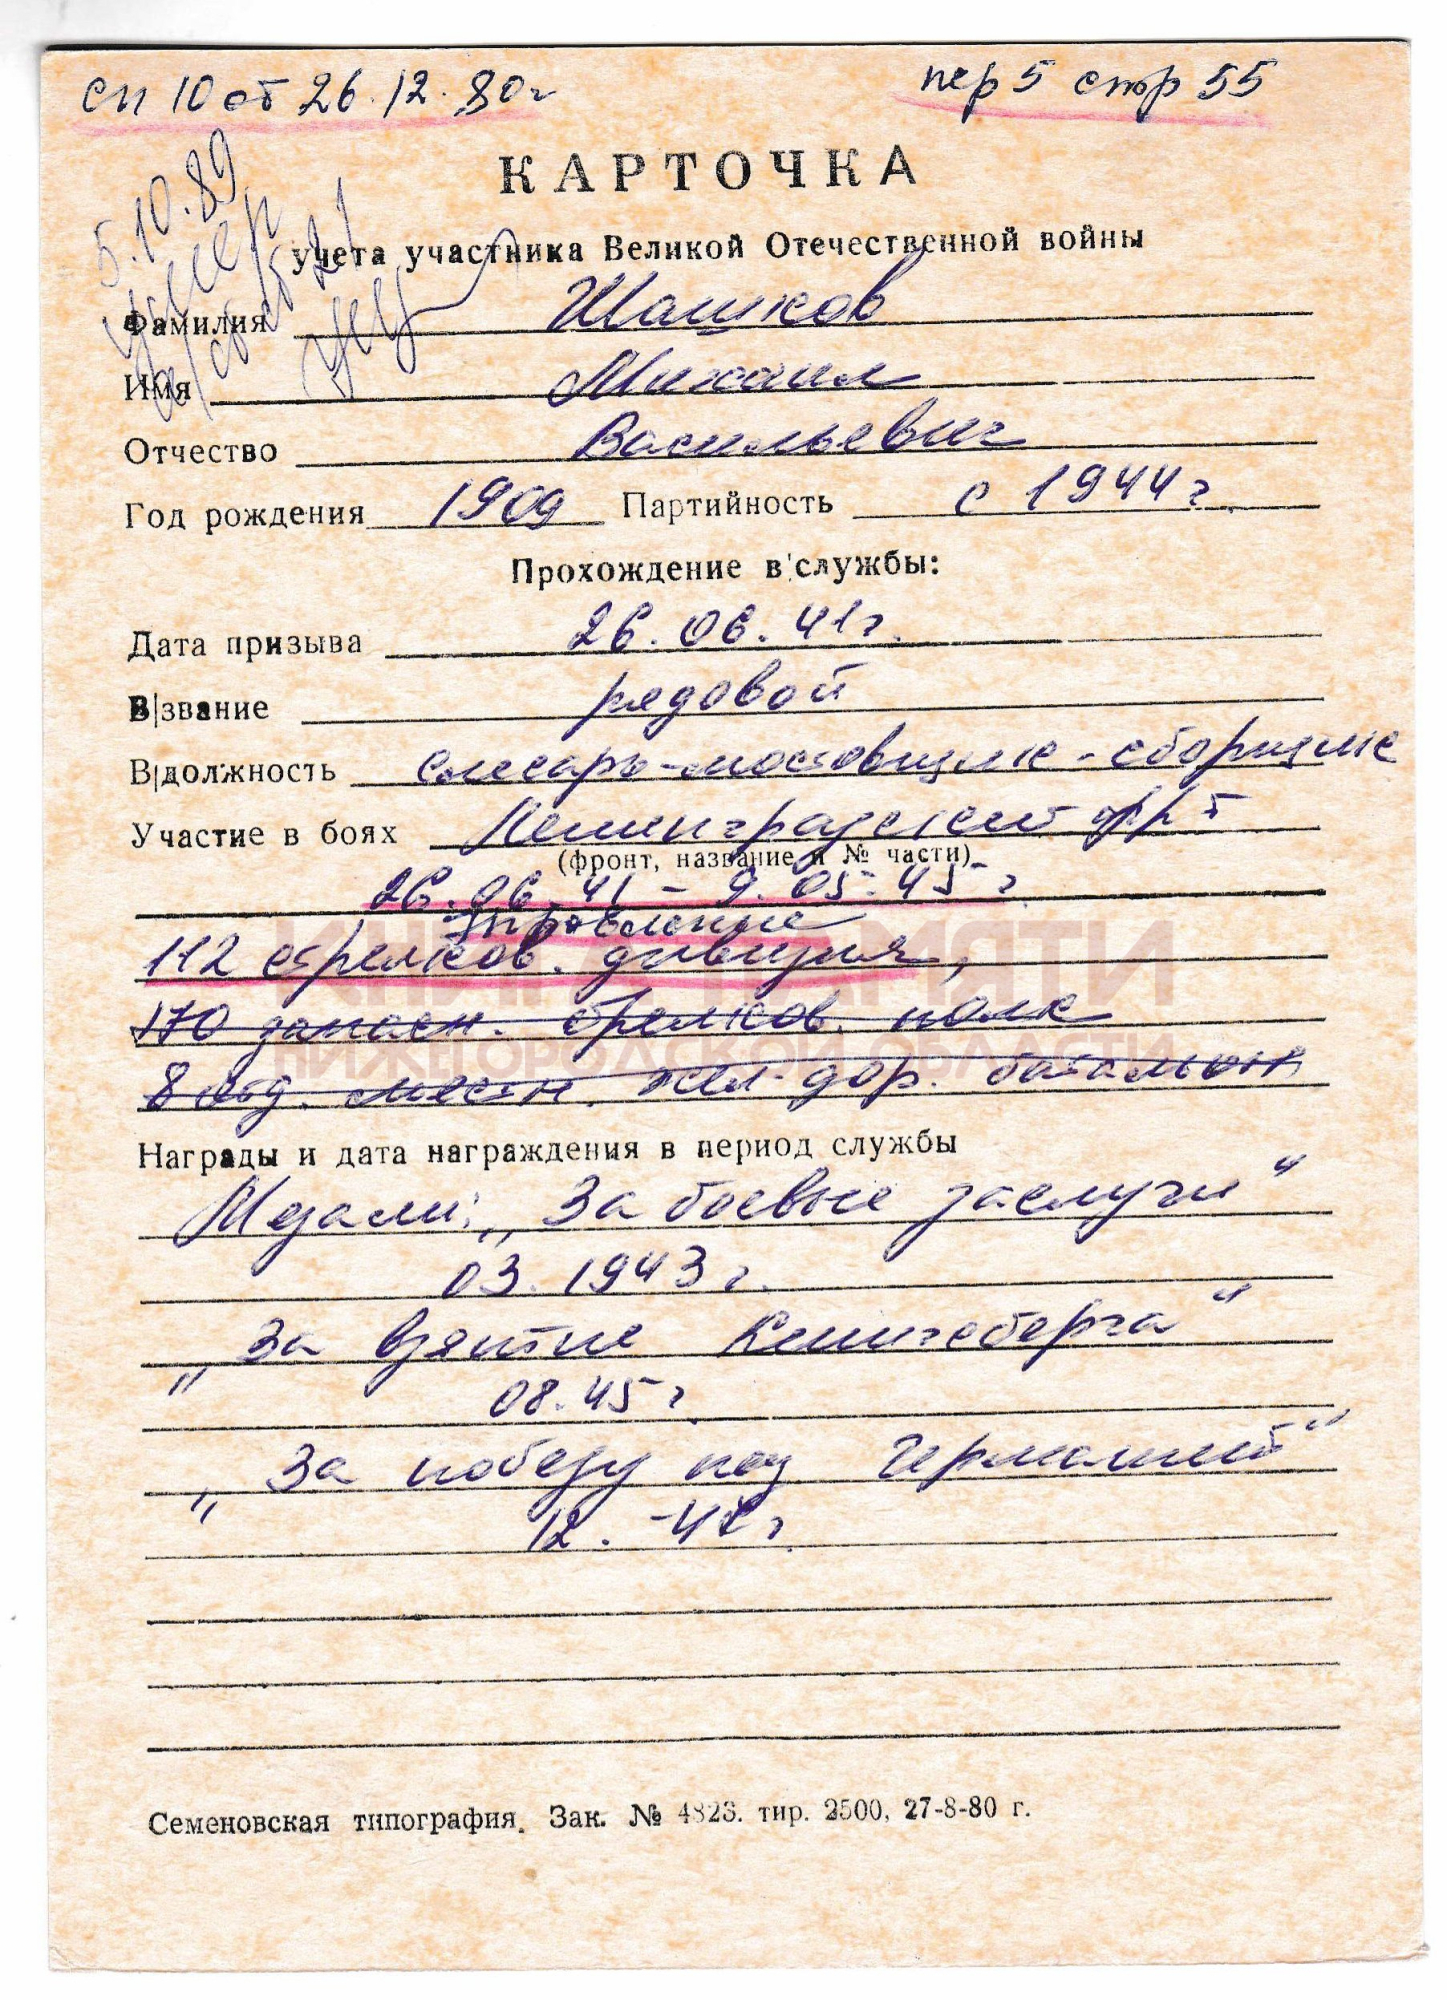 сп 10 от 26.12.80г
пер 5 стр 55
5.10.89
умер
КАРТОЧКА
учета участника Великой Отечественной войны
Фамилия Шашков
Имя Михаил
Отчество Васильевич
Год рождения 1909 Партийность с 1944 г.
Прохождение в/службы:
Дата призыва 26.06.41г.
В/звание рядовой
В/должность слесарь-мостовщик-сборщик
Участие в боях Ленинградский фр-т
(фронт, название и № части)
26.06.41 - 9.05.45 г
Управление
112 стрелков. дивизия,
170 запасн. стрелков. полк
8 отд. местн. жел-дор. батальон
КНИГА ПАМЯТИ
НИЖЕГОРОДСКОЙ ОБЛАСТИ
Награды и дата награждения в период службы
Медали: „За боевые заслуги"
03.1943 г.
„За взятие Кенигсберга"
08.45 г.
„За победу над Германией"
12. -45 г.
Семеновская типография. Зак. № 4823. тир. 2500, 27-8-80 г.